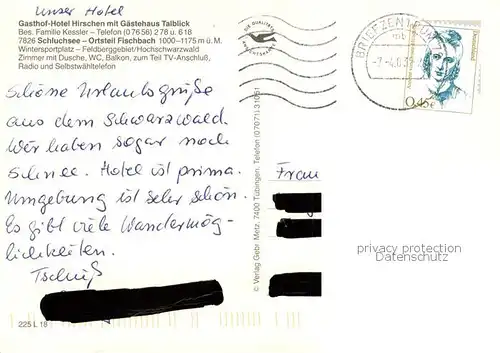 Unser Hotel
Gasthof-Hotel Hirschen mit Gästehaus Talblick
Bes. Familie Kessler – Telefon (0 76 56) 278 u. 618
7826 Schluchsee – Ortsteil Fischbach 1000–1175 m ü. M.
Wintersportplatz – Feldberggebiet/Hochschwarzwald
Zimmer mit Dusche, WC, Balkon, zum Teil TV-Anschluß,
Radio und Selbstwähltelefon
Schöne Urlaubsgrüße
aus dem Schwarzwald.
Wir haben sogar noch
Schnee. Hotel ist prima.
Umgebung ist sehr schön.
Es gibt viele Wandermög-
lichkeiten.
Tschüß
225 L 18
© Verlag Gebr. Metz, 7400 Tübingen, Telefon (07071) 31051
DIE QUALITÄTS
BRIEFZENTRUM
mb
0,45€
Deutschland
Frau
privacy protection
Datenschutz